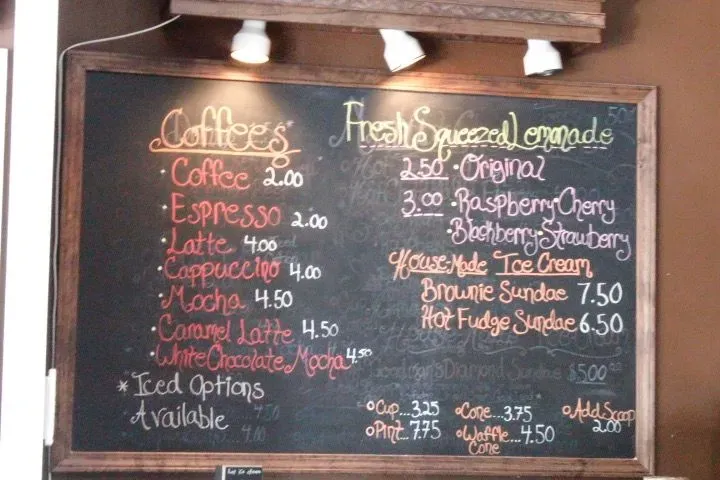 Coffees*
· Coffee 2.00
· Espresso 2.00
· Latte 4.00
· Cappuccino 4.00
· Mocha 4.50
· Caramel Latte 4.50
· White Chocolate Mocha 4.50
* Iced Options
Available
Fresh Squeezed Lemonade
2.50 · Original
3.00 · Raspberry · Cherry
· Blackberry · Strawberry
House-Made Ice Cream
Brownie Sundae 7.50
Hot Fudge Sundae 6.50
Goodman's Diamond Sundae $500
Cup...3.25 Cone...3.75 Add Scoop
2.00
Pint...7.75 Waffle...4.50
Cone